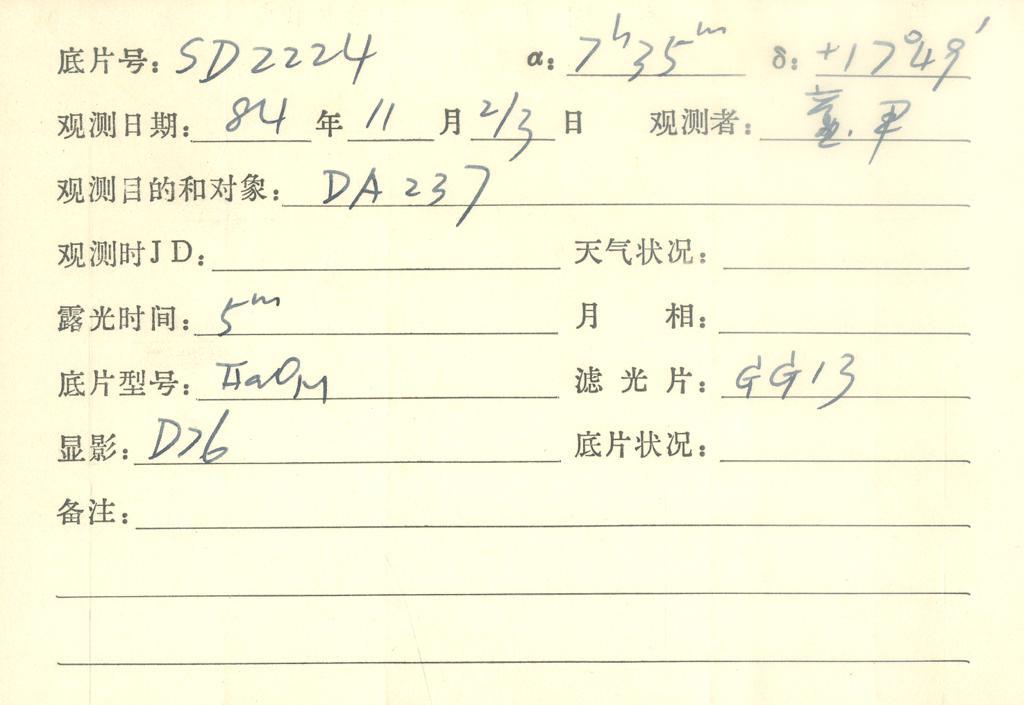 底片号: SD2224 α: 7ʰ35ᵐ δ: +17°49′
观测日期: 84 年 11 月 2/3 日 观测者:
观测目的和对象: DA237
观测时JD: 天气状况:
露光时间: 5ᵐ 月 相:
底片型号: IIaO 滤光片: GG13
显影: D76 底片状况:
备注: